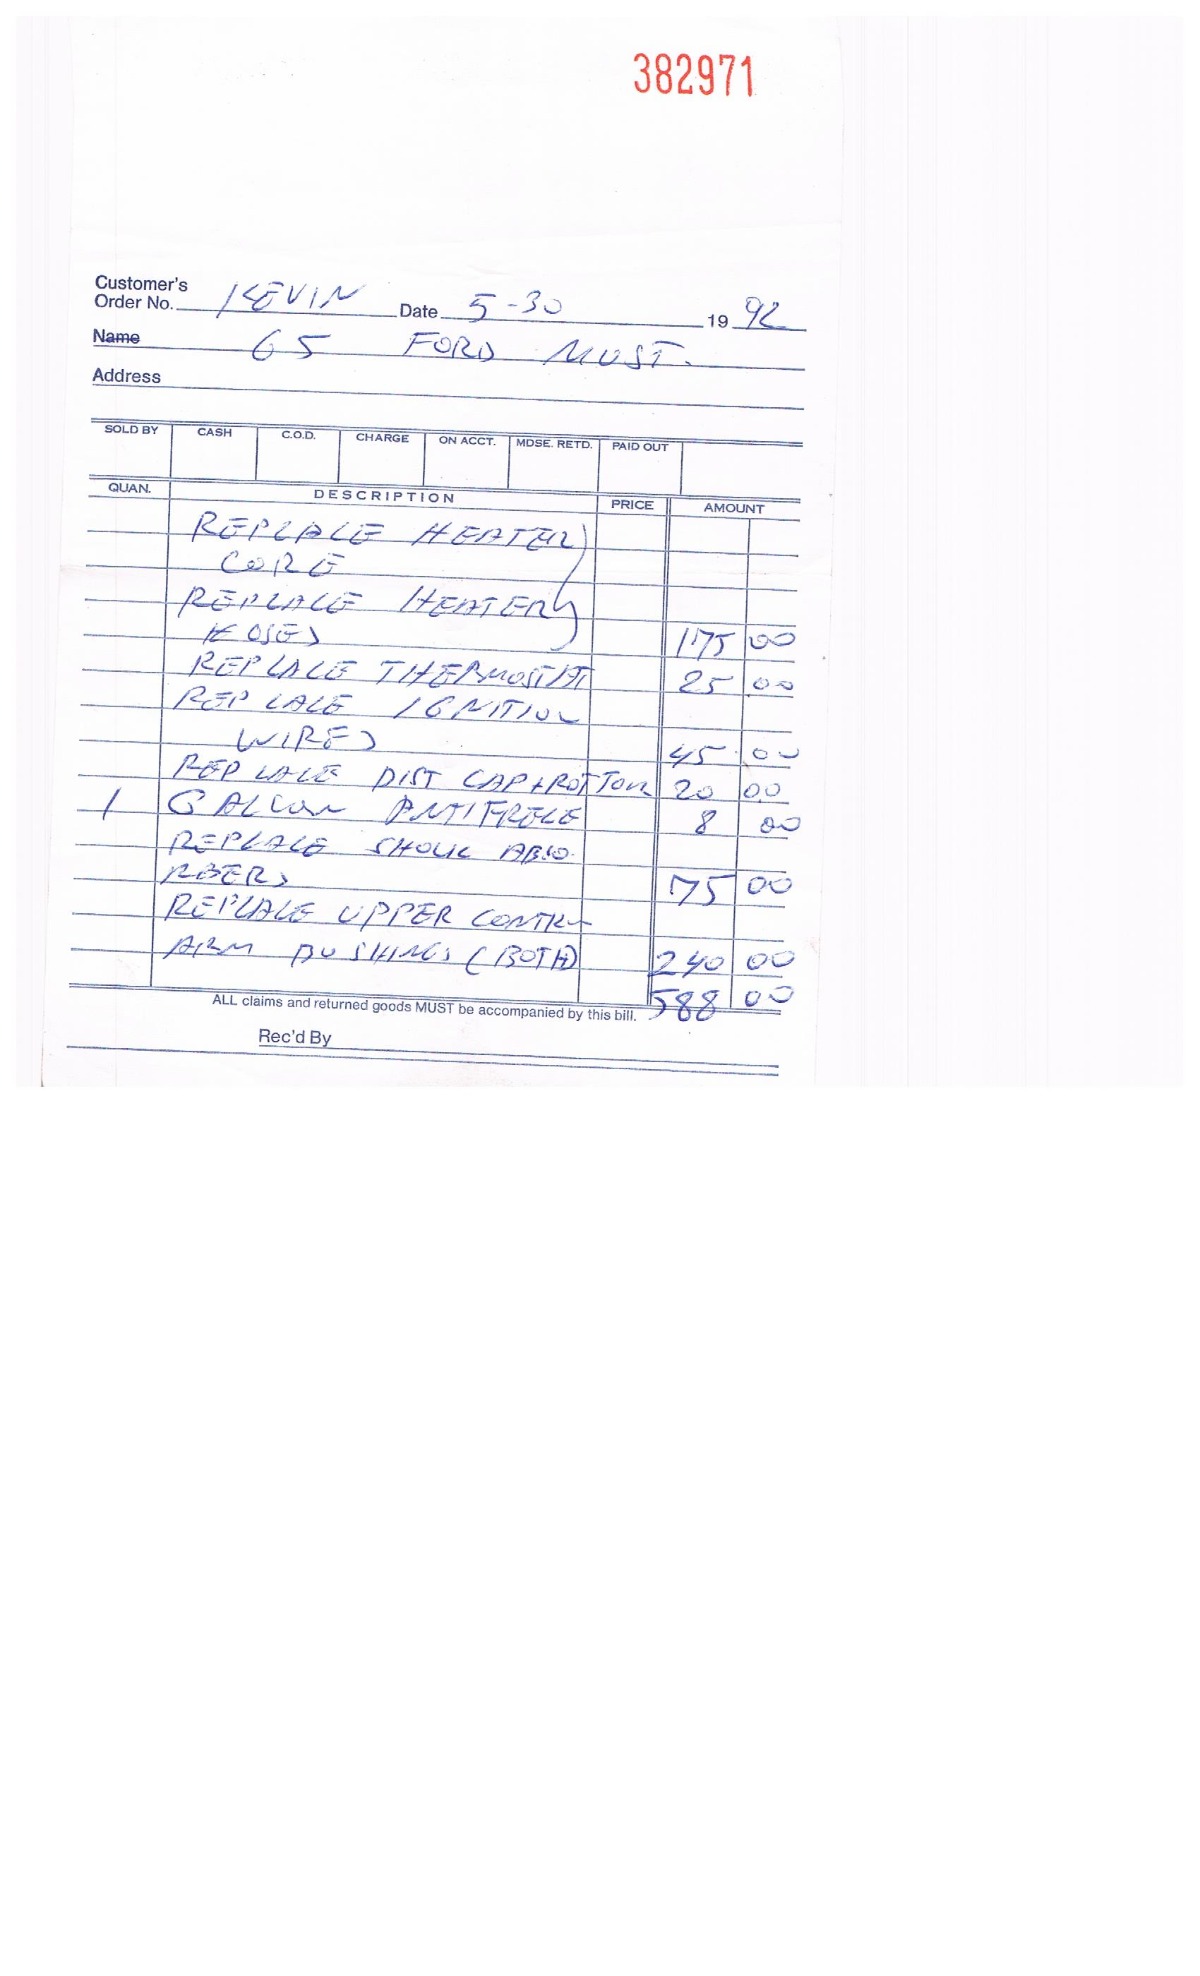 382971
Customer's
Order No. KEVIN Date 5-30 19 92
Name 65 FORD MUST.
Address
SOLD BY CASH C.O.D. CHARGE ON ACCT. MDSE. RETD. PAID OUT
QUAN. DESCRIPTION PRICE AMOUNT
REPLACE HEATER
CORE
REPLACE HEATER
HOSES 175 00
REPLACE THERMOSTAT 25 00
REPLACE IGNITION
WIRES 45 00
REPLACE DIST CAP+ROTTOR 20 00
1 GALLON ANTIFREEE 8 00
REPLACE SHOCK ABSO
RBERS 75 00
REPLACE UPPER CONTRL
ARM BUSHINGS (BOTH) 240 00
588 00
ALL claims and returned goods MUST be accompanied by this bill.
Rec'd By